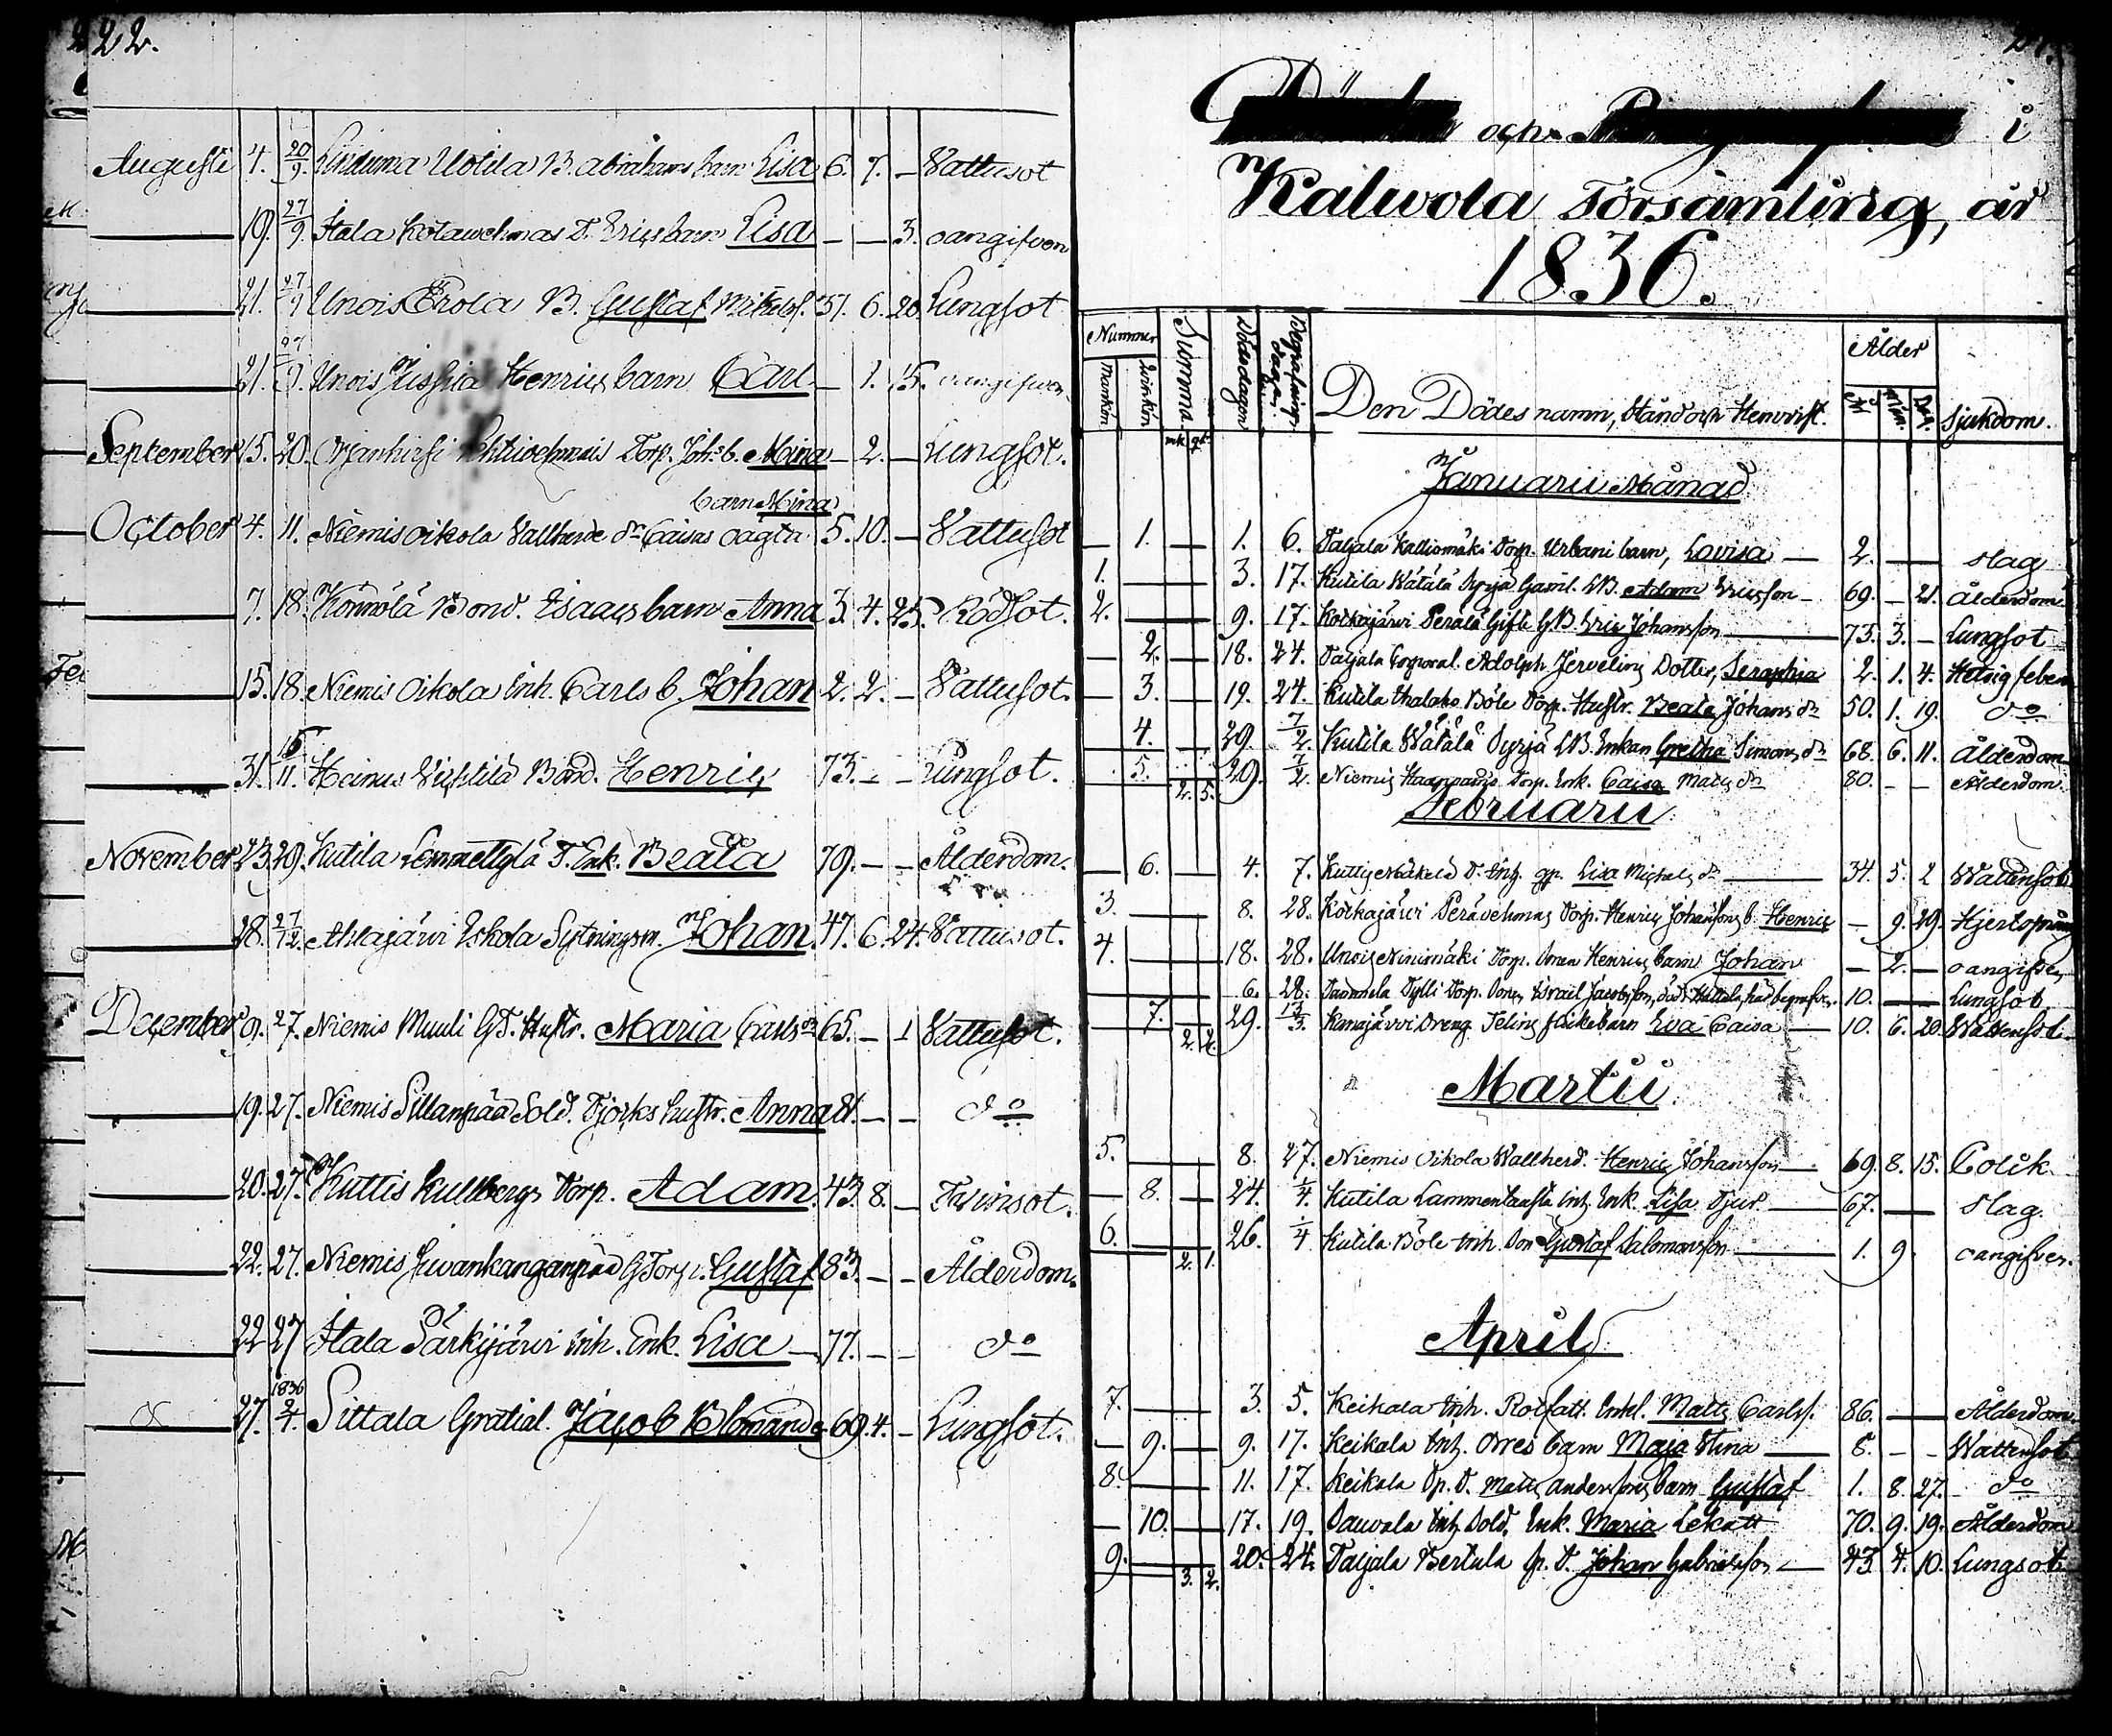 222.
Augusti 4. 20/9. Lintuma Uotila B. Abrahams barn Lisa 6. 7. — Vattusot
— 19. 27/9. Itala Kotawehmas T. Erics barn Lisa — — 3. oangifven
— 21. 27/9 Unois Erola B. Gustaf Mikelss. 51. 6. 20. Lungsot
— 21. 27/9. Unois Jussila Henrics barn Carl — 1. 15. oangifven
September 15. 20. Torp. Joh:s b. Mina — 2. — Lungsot.
barn Mina
October 4. 11. Niemis Oikola Vallherde dr Caisas oägta 5. 10. — Vattusot
— 7. 18. Konnola Bond. Isaacs barn Anna 3. 4. 25. Rödsot.
— 15. 18. Niemis Oikola Inh. Carls b. Johan 2. 2. — Vattusot.
— 31. 15/11. Heinus Bond. Henric 73. — — Lungsot.
November 23. 29. Kutila Lemmettylä T. Enk. Beata 79. — — Ålderdom.
— 28. 27/12. Ahlajärvi Eskola Sytningsm. Johan 47. 6. 24. Vattusot.
December 9. 27. Niemis Muuli G.T. Hustr. Maria Carls dr 65. — 1 Vattusot.
— 19. 27. Niemis Sillanpää Sold. Björks hustr. Anna 81. — — do
— 20. 27. Kuttis Kullbergs Torp. Adam. 43. 8. — Tvinsot.
— 22. 27. Niemis GTorp. Gustaf 83. — — Ålderdom.
— 22 27 Itala Särkijärvi Inh. Enk. Lisa — 77. — — do
— 27. 1836 2/4 Sittala Gratial. Jacob Blomand 69. 4. — Lungsot.
och i
Kalwola Församling, år
1836.
Nummer Mankön Qvinkön Summa mk. qk. Dödsdagen Begrafnings dagen Den Dödes namn, Stånd och Hemvist. Ålder År Mån. Dag. Sjukdom.
Januarii Månad
— 1. — 1. 6. Taljala Kalliomäki Torp. Urbani barn, Lovisa — 2. — Slag
1. — 3. 17. Kutila Wätälä Syrjä Gaml. LB. Adam Ericsson — 69. — 21. Ålderdom
2. — 9. 17. Kotkajärvi Perälä Gifte GB. Eric Johansson — 73. 3. — Lungsot
— 2. — 18. 24. Taljala Corporal. Adolph Jervelins Dotter, Seraphia 2. 1. 4. Hetsig feber
— 3. — 19. 24. Kutila Böle Torp. Hustr. Beata Johans dr 50. 1. 19. do
4. 29. 7/2. Kutila Wätälä Syrjä LB. Enkan Gretha Simons dr 68. 6. 11. Ålderdom
5. 2. 5. 29. 7/2. Niemis Torp. Enk. Caisa Matts dr 80. — — Ålderdom.
Februarii
— 6. — 4. 7. Kuttis Mäkelä T. Inh. gp. Lisa Michels dr — 34. 5. 2 Wattensot
3. — 8. 28. Kotkajärvi Perävehmas Torp. Henric Johanssons b. Henric — 9. 29. Hjertsprång
4. — 18. 28. Unois Niinimäki Torp. Sonen Henrics barn Johan — 2. — oangifven
6. 28. Tammela Torp. Sonen Israil Jacobsson, död i Kuttila, här begrafven. 10. — Lungsot
7. 2. 2. 29. 13/3. Kanajärvi Dreng Telins fickebarn Eva Caisa — 10. 6. 20. Wattensot.
Martii
5. — 8. 27. Niemis Oikola Wallherd. Henric Johansson — 69. 8. 15. Colik
— 8. — 24. 1/4. Kutila Inh. Enk. Lisa Djur — 67. — Slag.
6. 2. 1. 26. 1/4 Kutila Böle Inh. Son Gustaf Salomonsson — 1. 9. oangifven.
April
7. — 3. 5. Keikala Inh. Rotfatt. Enkl. Matts Carlss. 86. — Ålderdom
— 9. — 9. 17. Keikala Inh. barn Maja Stina — 8. — — Wattensot
8. — 11. 17. Keikala Sp. T. Matts Anderssons barn Gustaf 1. 8. 27. do
— 10. — 17. 19. Sauvala Inh. Sold. Enk. Maria Lekatt 70. 9. 19. Ålderdom
9. 3. 2. 20. 24. Taljala Bertula Sp. T. Johan Gabrielsson — 43. 4. 10. Lungsot